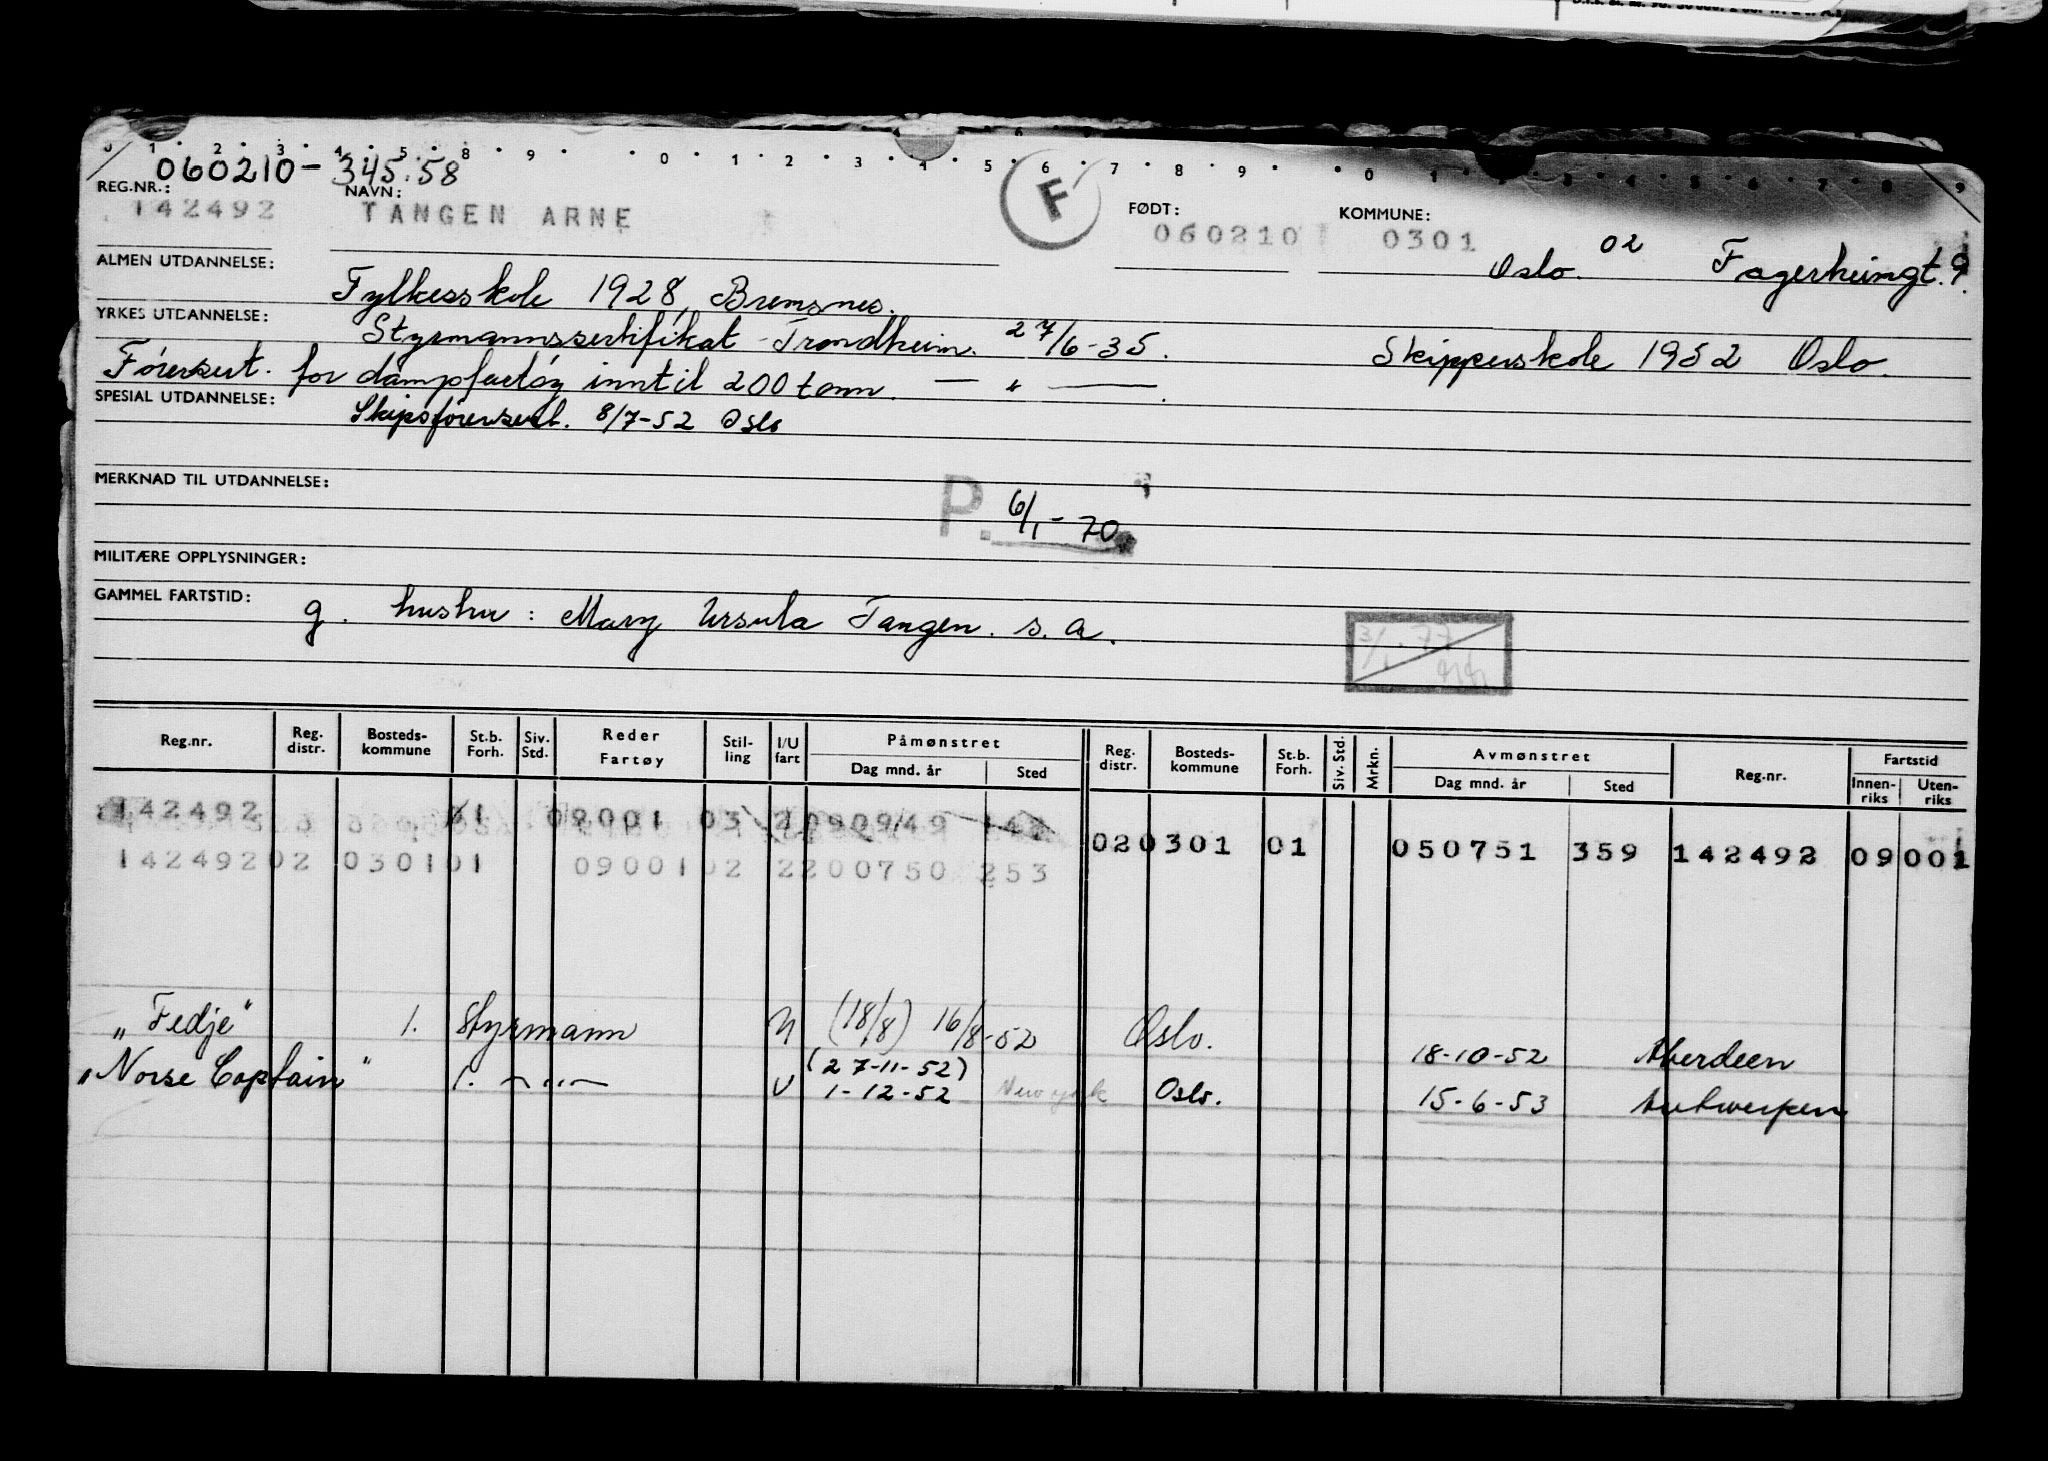 060210-345.58
REG.NR.: NAVN: FØDT: KOMMUNE:
142492 TANGEN ARNE F 060210 0301
Oslo. 02 Fagerheimgt. 9.
ALMEN UTDANNELSE: Fylkesskole 1928, Bremsnes.
YRKES UTDANNELSE: Styrmannssertifikat - Trondheim. 27/6-35. Skipperskole 1952 Oslo.
Førersert. for dampfartøy inntil 200 tonn. — " —
SPESIAL UTDANNELSE: Skipsførersert. 8/7-52 Oslo
MERKNAD TIL UTDANNELSE:
P. 6/1-70
MILITÆRE OPPLYSNINGER:
GAMMEL FARTSTID: g. hustru: Mary Ursula Tangen. s. a.
3/1.77
Reg.nr. Reg. distr. Bosteds-kommune St.b. Forh. Siv. Std. Reder Fartøy Stil-ling I/U fart Påmønstret Dag mnd. år Sted Reg. distr. Bosteds-kommune St.b. Forh. Siv. Std. Mrkn. Avmønstret Dag mnd. år Sted Reg.nr. Fartstid Innen-riks Uten-riks
142492 09001 03 2 090949 142
02 0301 01 050751 359 142492 09 001
142492 02 0301 01 09001 02 2 200750 253
"Fedje" 1. Styrmann U (18/8) 16/8-52 Oslo. 18-10-52 Aberdeen
(27-11-52)
"Norse Captain" 1. — " — U 1-12-52 New york Oslo. 15-6-53 Antwerpen